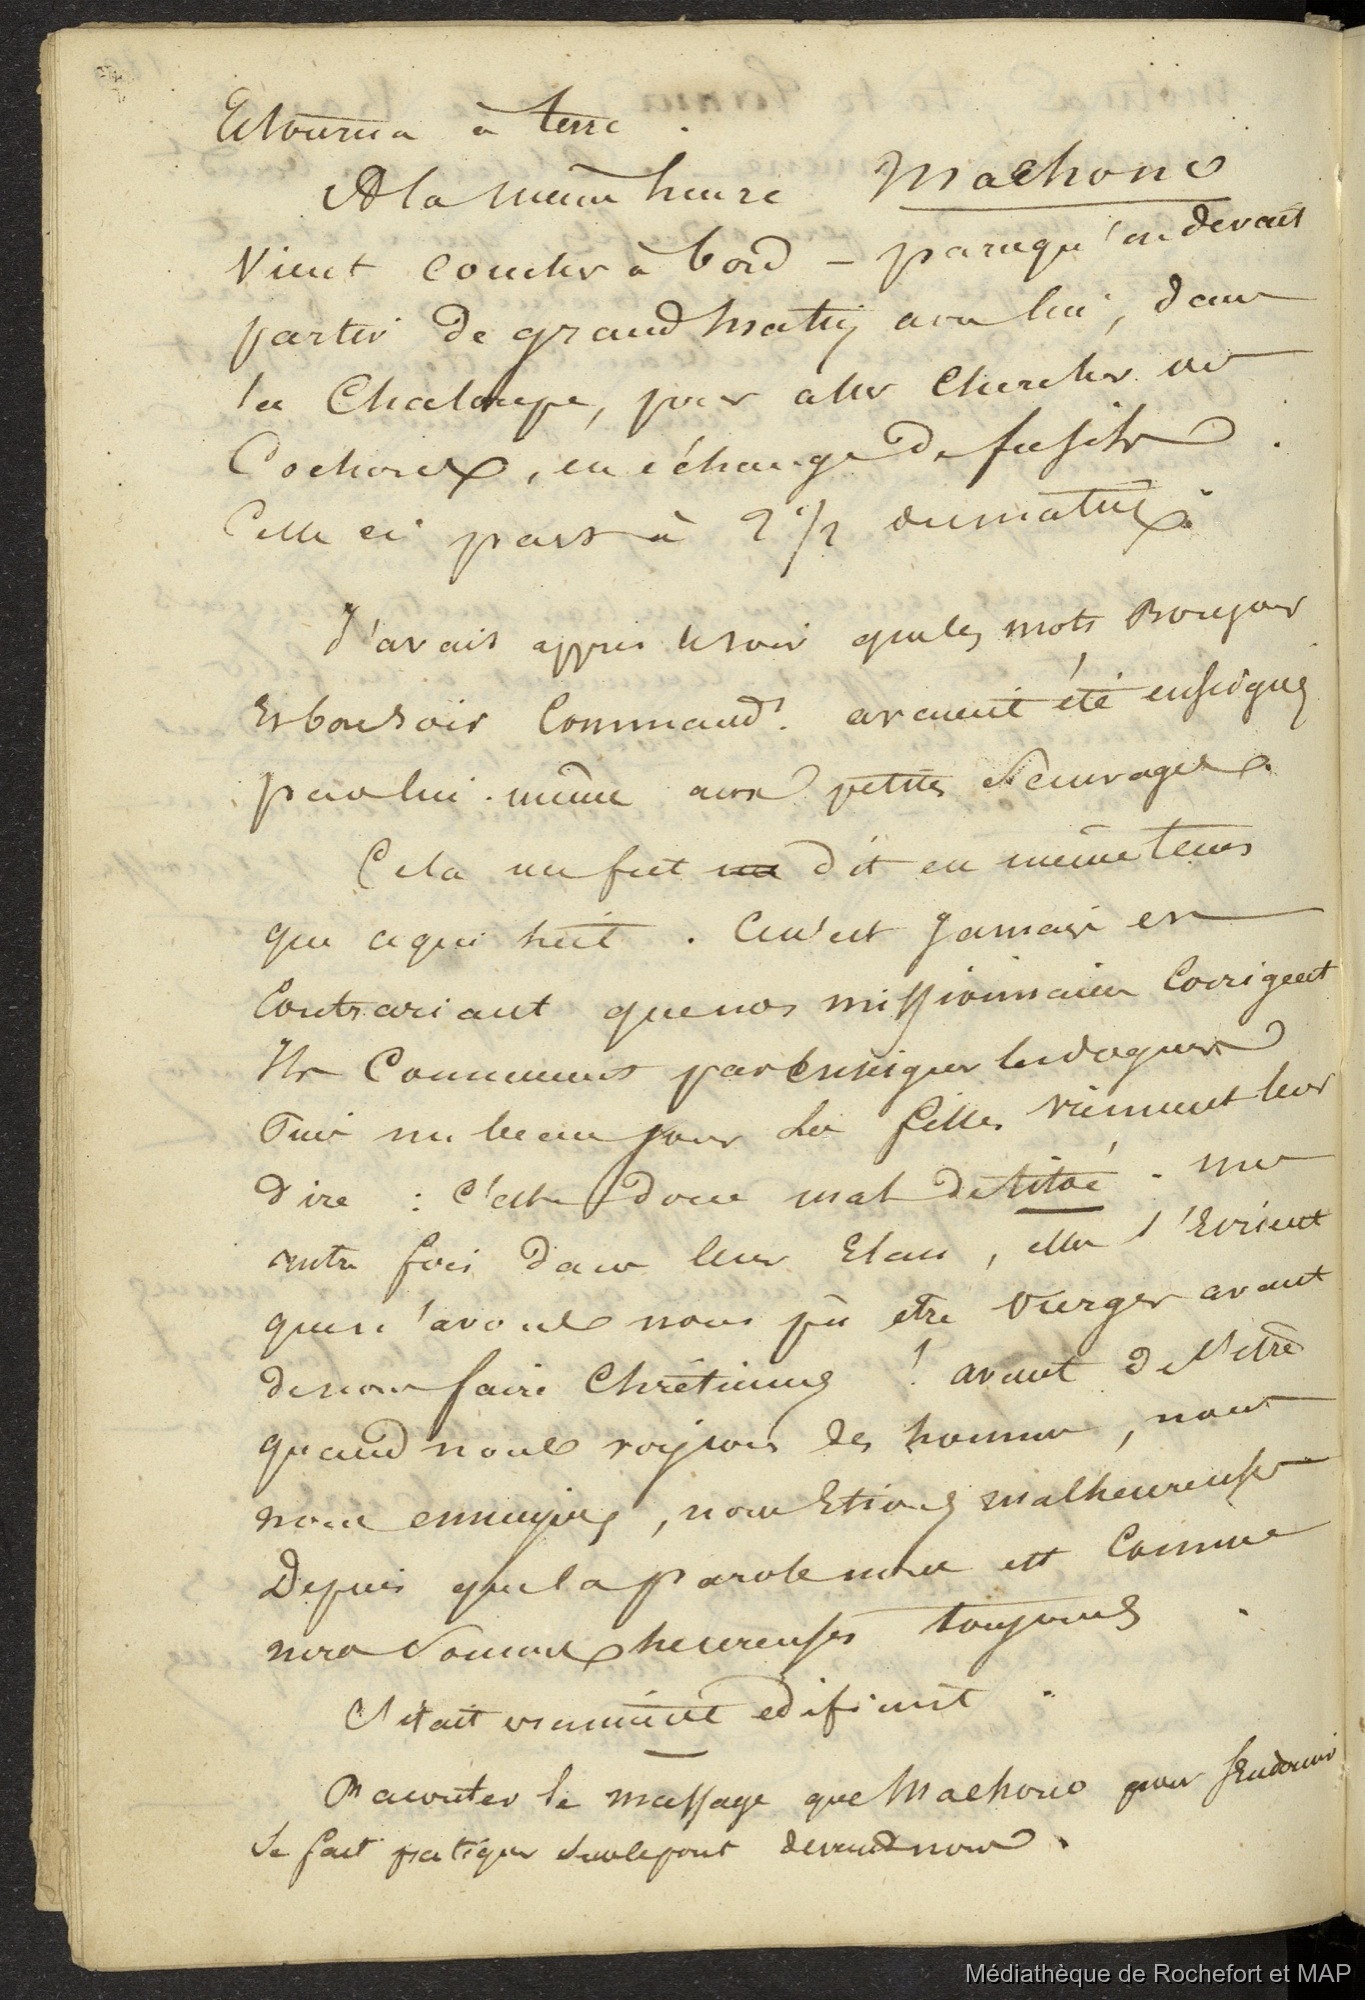 Retourna à terre.
A la même heure Maehono
vient coucher à bord – parcequ'on devait
partir de grand matin avec lui, dans
la Chaloupe, pour aller chercher des
Cochons, en échange de fusils.
Celle ci part à 2 1/2 du matin.
J'avais appris le soir que les mots Bonjour
et bonsoir Command.t avaient été enseignés
par lui-même aux petites sauvages.
Cela me fut dit en même tems
que ce qui suit. Ce n'est jamais en
contrariant que nos missionnaires corrigent
Ils commencent par enseigner les dogmes
Puis un beau jour les filles viennent leur
dire : c'est donc mal de titoé. Une
autre fois dans leur élan, elles s'écrient
que n'avons nous pû être vierges avant
de nous faire Chrétiennes ! avant de l'être
quand nous voyions des hommes, nous
nous ennuyions, nous étions malheureuses
Depuis que la parole nous est connue
nous sommes heureuses toujours.
C'était vraiment édifiant.
Raconter le massage que Maehono pour s'endormir
se fait pratiquer sur le pont devant nous.
Médiathèque de Rochefort et MAP